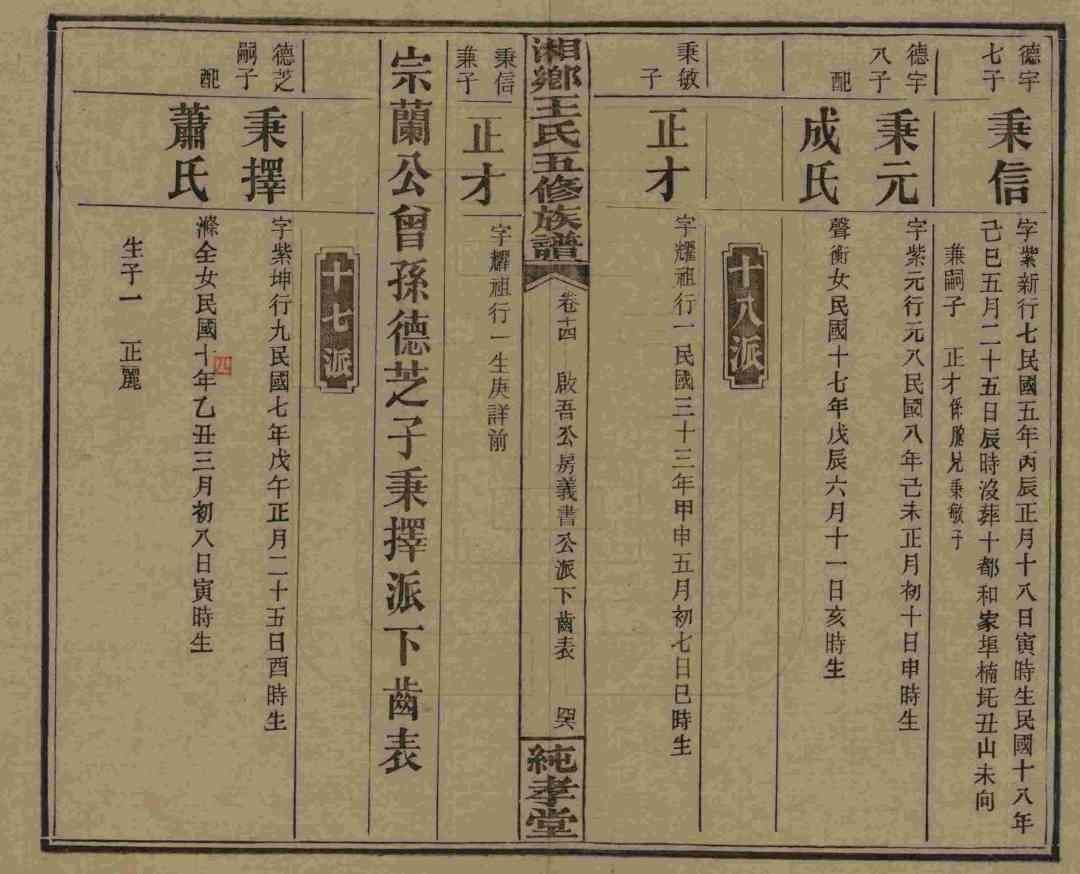 德宇
七子
秉信
字紫新行七民國五年丙辰正月十八日寅時生民國十八年
己巳五月二十五日辰時沒葬十都和家埠楠圫丑山未向
兼嗣子 正才係胞兄秉敏子
德宇
八子
秉元
字紫元行元八民國八年己未正月初十日申時生
配
成氏
聲衡女民國十七年戊辰六月十一日亥時生
十八派
秉敏
子
正才
字耀祖行一民國三十三年甲申五月初七日巳時生
湘鄉王氏五修族譜
卷十四 啟吾公房義書公派下齒表
純孝堂
秉信
兼子
正才
字耀祖行一生庚詳前
宗蘭公曾孫德芝子秉擇派下齒表
十七派
德芝
嗣子
秉擇
字紫坤行九民國七年戊午正月二十五日酉時生
配
蕭氏
滌全女民國十四年乙丑三月初八日寅時生
生子一 正麗